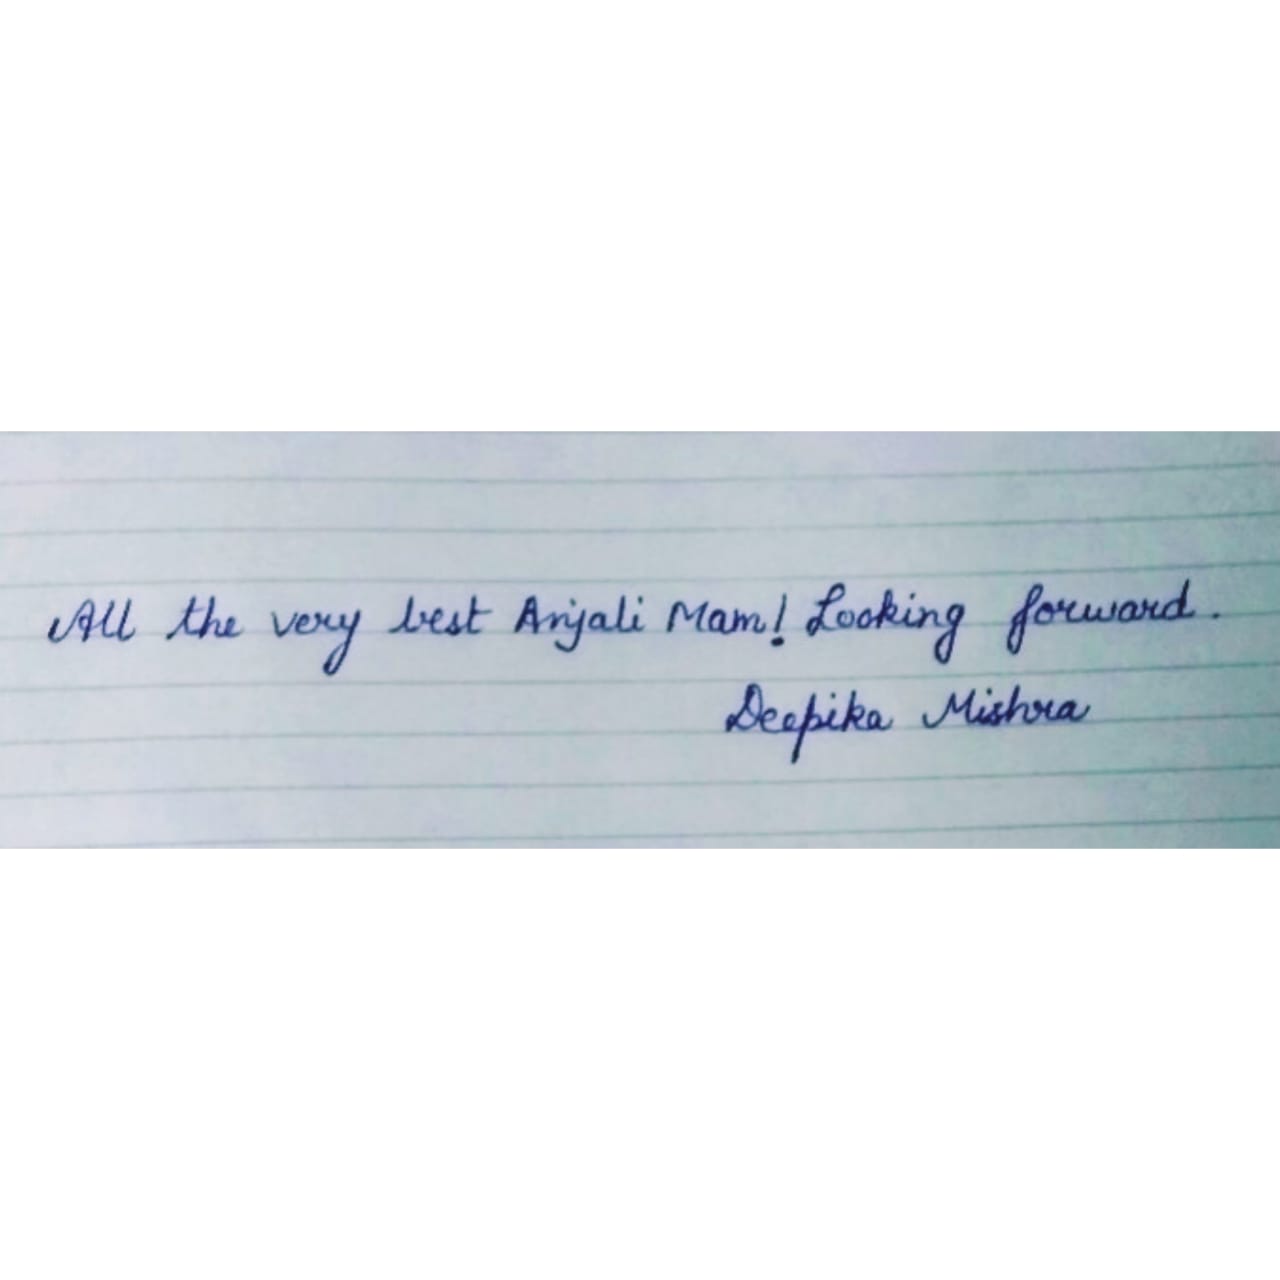 All the very best Anjali Mam! Looking forward.
Deepika Mishra